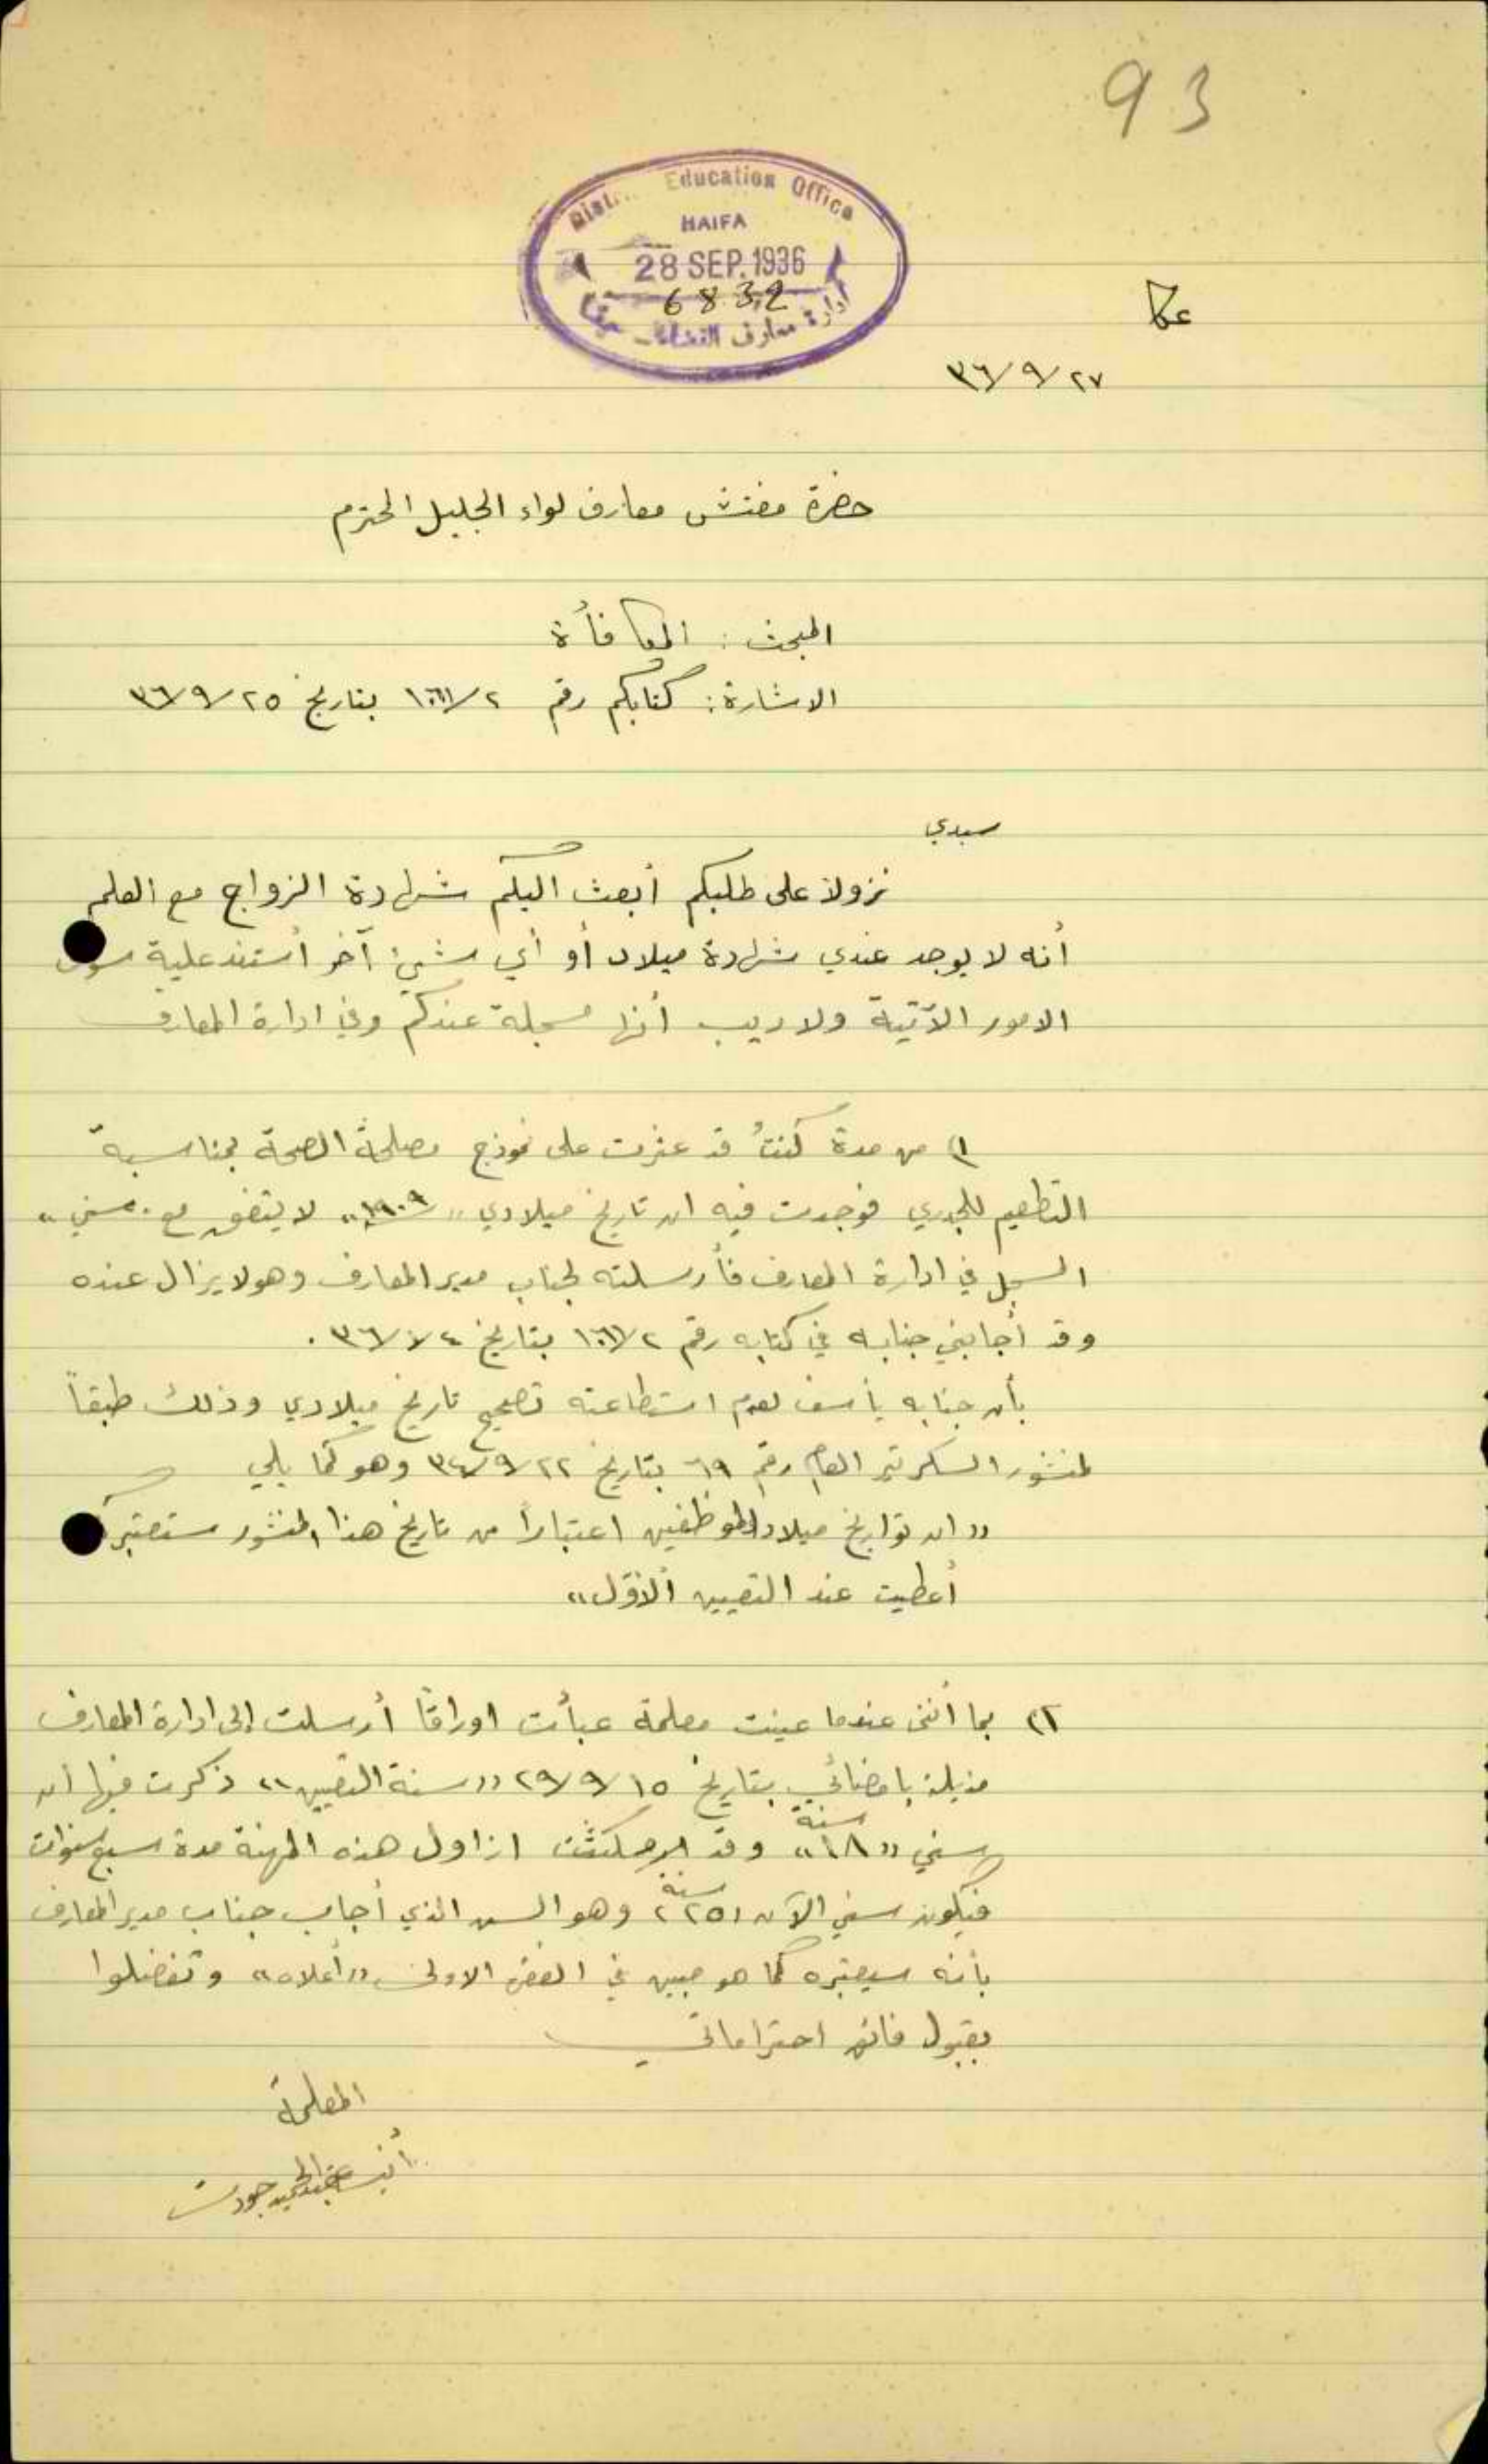 93
Education Office
HAIFA
28 SEP. 1936
6832
ادارة معارف القضاء
عكا
٣٦/٩/٢٧
حضرة مفتش معارف لواء الجليل المحترم
المبحث : المكافأة
الاشارة : كتابكم رقم بتاريخ ٣٦/٩/٢٥
سيدي
نزولاً على طلبكم أبعث اليكم شهادة الزواج مع العلم
أنه لا يوجد عندي شهادة ميلاد أو أي شيء آخر أستند عليه سوى
الامور الآتية ولا ريب أنها مسجلة عندكم وفي ادارة المعارف
١) من مدة كنتُ قد عثرت على نموذج مصلحة الصحة بمناسبة
التطعيم للجدري فوجدت فيه ان تاريخ ميلادي "١٩٠٩" لا يتفق مع "سني"
المسجل في ادارة المعارف فأرسلته لجناب مدير المعارف وهو لا يزال عنده
وقد أجابني جنابه في كتابه رقم بتاريخ
بأن جنابه يأسف لعدم استطاعته تصحيح تاريخ ميلادي وذلك طبقاً
لمنشور السكرتير العام رقم ٦٩ بتاريخ ٣٤/٩/٢٢ وهو كما يلي
"ان تواريخ ميلاد الموظفين اعتباراً من تاريخ هذا المنشور ستعتبر كما
أعطيت عند التعيين الأول"
٢) بما أنني عندما عينت معلمة عبأت اوراقاً أرسلت إلى ادارة المعارف
مذيلة بامضائي بتاريخ ٢٩/٩/١٥ "سنة التعيين" ذكرت فيها ان
سني "١٨" سنة وقد مكثت ازاول هذه المهنة مدة سبع سنوات
فيكون سني الآن "٢٥" سنة وهو السن الذي أجاب جناب مدير المعارف
بأنه سيعتبره كما هو مبين في الفقرة الاولى "أعلاه" وتفضلوا
بقبول فائق احتراماتي
المعلمة
عبد الحميد جودت